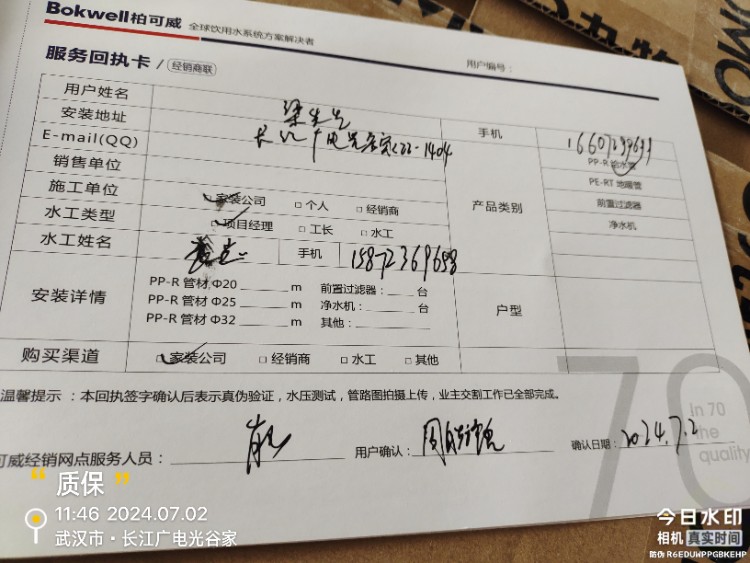 Bokwell柏可威 全球饮用水系统方案解决者
服务回执卡 / 经销商联 用户编号：
用户姓名 梁先生
安装地址 手机
E-mail(QQ) PP-R 给水管
销售单位 PE-RT 地暖管
施工单位 家装公司 □个人 □经销商 产品类别 前置过滤器
水工类型 项目经理 □工长 □水工 净水机
水工姓名 手机 15872369658
安装详情 PP-R 管材 Φ20 m 前置过滤器： 台 户型
PP-R 管材 Φ25 m 净水机： 台
PP-R 管材 Φ32 m 其他：
购买渠道 □家装公司 □经销商 □水工 □其他
温馨提示 ：本回执签字确认后表示真伪验证，水压测试，管路图拍摄上传，业主交割工作已全部完成。
70
In 70
the
quality
可威经销网点服务人员： 用户确认： 确认日期： 2024.7.2
“质保”
11:46 2024.07.02
武汉市·长江广电光谷家
今日水印
相机 真实时间
防伪 R6EDUWPPGBKEHP